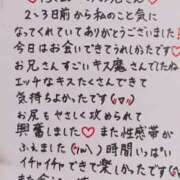 2、3日前から私のこと気に
なってくれていてありがとうございました
今日はお会いできてうれしかったです♡
お兄さんすごいキス魔さんでしたね
エッチなキスたくさんできて
気持ちよかったです
お尻もやさしく攻められて
興奮しました♡また性感帯が
ふえました 時間いっぱい
イチャイチャできて楽しかったです